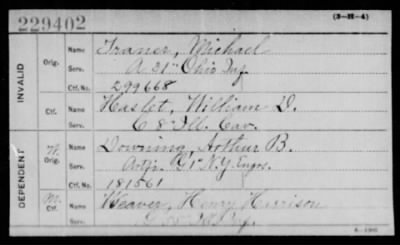 229402
(3-H-4)
INVALID
Orig.
Name Traner, Michael
Serv. A 31" Ohio Inf.
Ctf. No. 299668
Ctf.
Name Haslet, William D.
Serv. C 8" Ill. Cav.
DEPENDENT
W. Orig.
Name Downing, Arthur B.
Serv. Artif. G 1" N.Y. Engrs.
Ctf. No. 181561
M. Ctf.
Name Weaver, Henry Harrison
Serv. Inf.